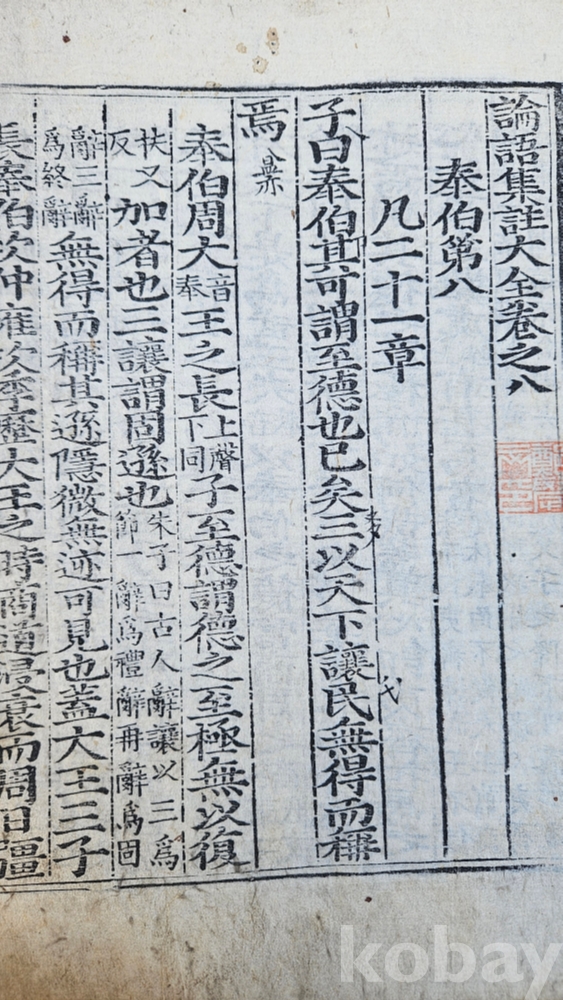 論語集註大全卷之八
泰伯第八
凡二十一章
子曰泰伯其可謂至德也已矣三以天下讓民無得而稱
焉
泰伯周大音泰王之長上聲下同子至德謂德之至極無以復
扶又反加者也三讓謂固遜也朱子曰古人辭讓以三爲節一辭爲禮辭再辭爲固
辭三辭爲終辭無得而稱其遜隱微無迹可見也蓋大王三子
長泰伯次仲雍次季歷大王之時商道浸衰而周日彊
kobay